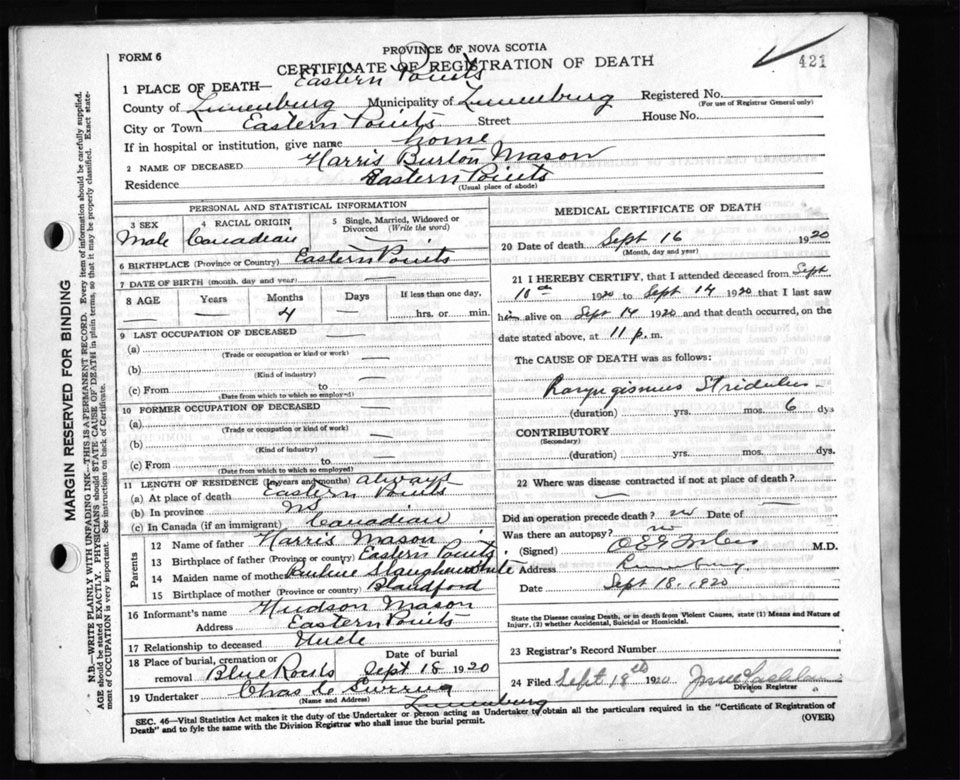 FORM 6
PROVINCE OF NOVA SCOTIA
CERTIFICATE OF REGISTRATION OF DEATH
421
1 PLACE OF DEATH— Eastern Points
County of Lunenburg Municipality of Lunenburg Registered No.
(For use of Registrar General only)
City or Town Eastern Points Street House No.
If in hospital or institution, give name home
2 NAME OF DECEASED Harris Burton Mason
Residence Eastern Points
(Usual place of abode)
PERSONAL AND STATISTICAL INFORMATION
3 SEX 4 RACIAL ORIGIN 5 Single, Married, Widowed or Divorced (Write the word)
Male Canadian —
6 BIRTHPLACE (Province or Country) Eastern Points
7 DATE OF BIRTH (month, day and year) —
8 AGE Years Months Days If less than one day,
— — 4 — hrs. or min.
9 LAST OCCUPATION OF DECEASED
(a) —
(Trade or occupation or kind of work)
(b) —
(Kind of industry)
(c) From to
(Date from which to which so employed)
10 FORMER OCCUPATION OF DECEASED
(a) —
(Trade or occupation or kind of work)
(b) —
(Kind of industry)
(c) From — to
(Date from which to which so employed)
11 LENGTH OF RESIDENCE (In years and months) always
(a) At place of death Eastern Points
(b) In province NS
(c) In Canada (if an immigrant) Canadian
Parents
12 Name of father Harris Mason
13 Birthplace of father (Province or country) Eastern Points
14 Maiden name of mother Pauline Slaughenwhite
15 Birthplace of mother (Province or country) Blandford
16 Informant's name Hudson Mason
Address Eastern Points
17 Relationship to deceased Uncle
18 Place of burial, cremation or removal Date of burial
Blue Rocks Sept 18 1920
19 Undertaker Chas
(Name and Address) Lunenburg
MEDICAL CERTIFICATE OF DEATH
20 Date of death Sept 16 1920
(Month, day and year)
21 I HEREBY CERTIFY, that I attended deceased from Sept
10th 1920 to Sept 14 1920 that I last saw
him alive on Sept 14 1920 and that death occurred, on
date stated above, at 11 p. m.
The CAUSE OF DEATH was as follows:
Laryngismus Stridulus
(duration) yrs. mos. 6 dys
CONTRIBUTORY
(Secondary)
(duration) yrs. mos. dys.
22 Where was disease contracted if not at place of death?
—
Did an operation precede death? no Date of —
Was there an autopsy? no
(Signed) M.D.
Address Lunenburg
Date Sept 18, 1920
State the Disease causing Death, or in death from Violent Causes, state (1) Means and Nature of Injury, (2) whether Accidental, Suicidal or Homicidal.
23 Record Registrar Number
24 Filed Sept 18th 1920
Division Registrar
SEC. 46—Vital Statistics Act makes it the duty of the Undertaker or person acting as Undertaker to obtain all the particulars required in the "Certificate of Registration of
Death" and to fyle the same with the Division Registrar who shall issue the burial permit. (OVER)
MARGIN RESERVED FOR BINDING
N.B.—WRITE PLAINLY WITH UNFADING INK—THIS IS A PERMANENT RECORD. Every item of information should be carefully supplied.
AGE should be stated EXACTLY. PHYSICIANS should STATE CAUSE OF DEATH in plain terms, so that it may be properly classified. Exact state-
ment of OCCUPATION is very important. See instructions on back of Certificate.